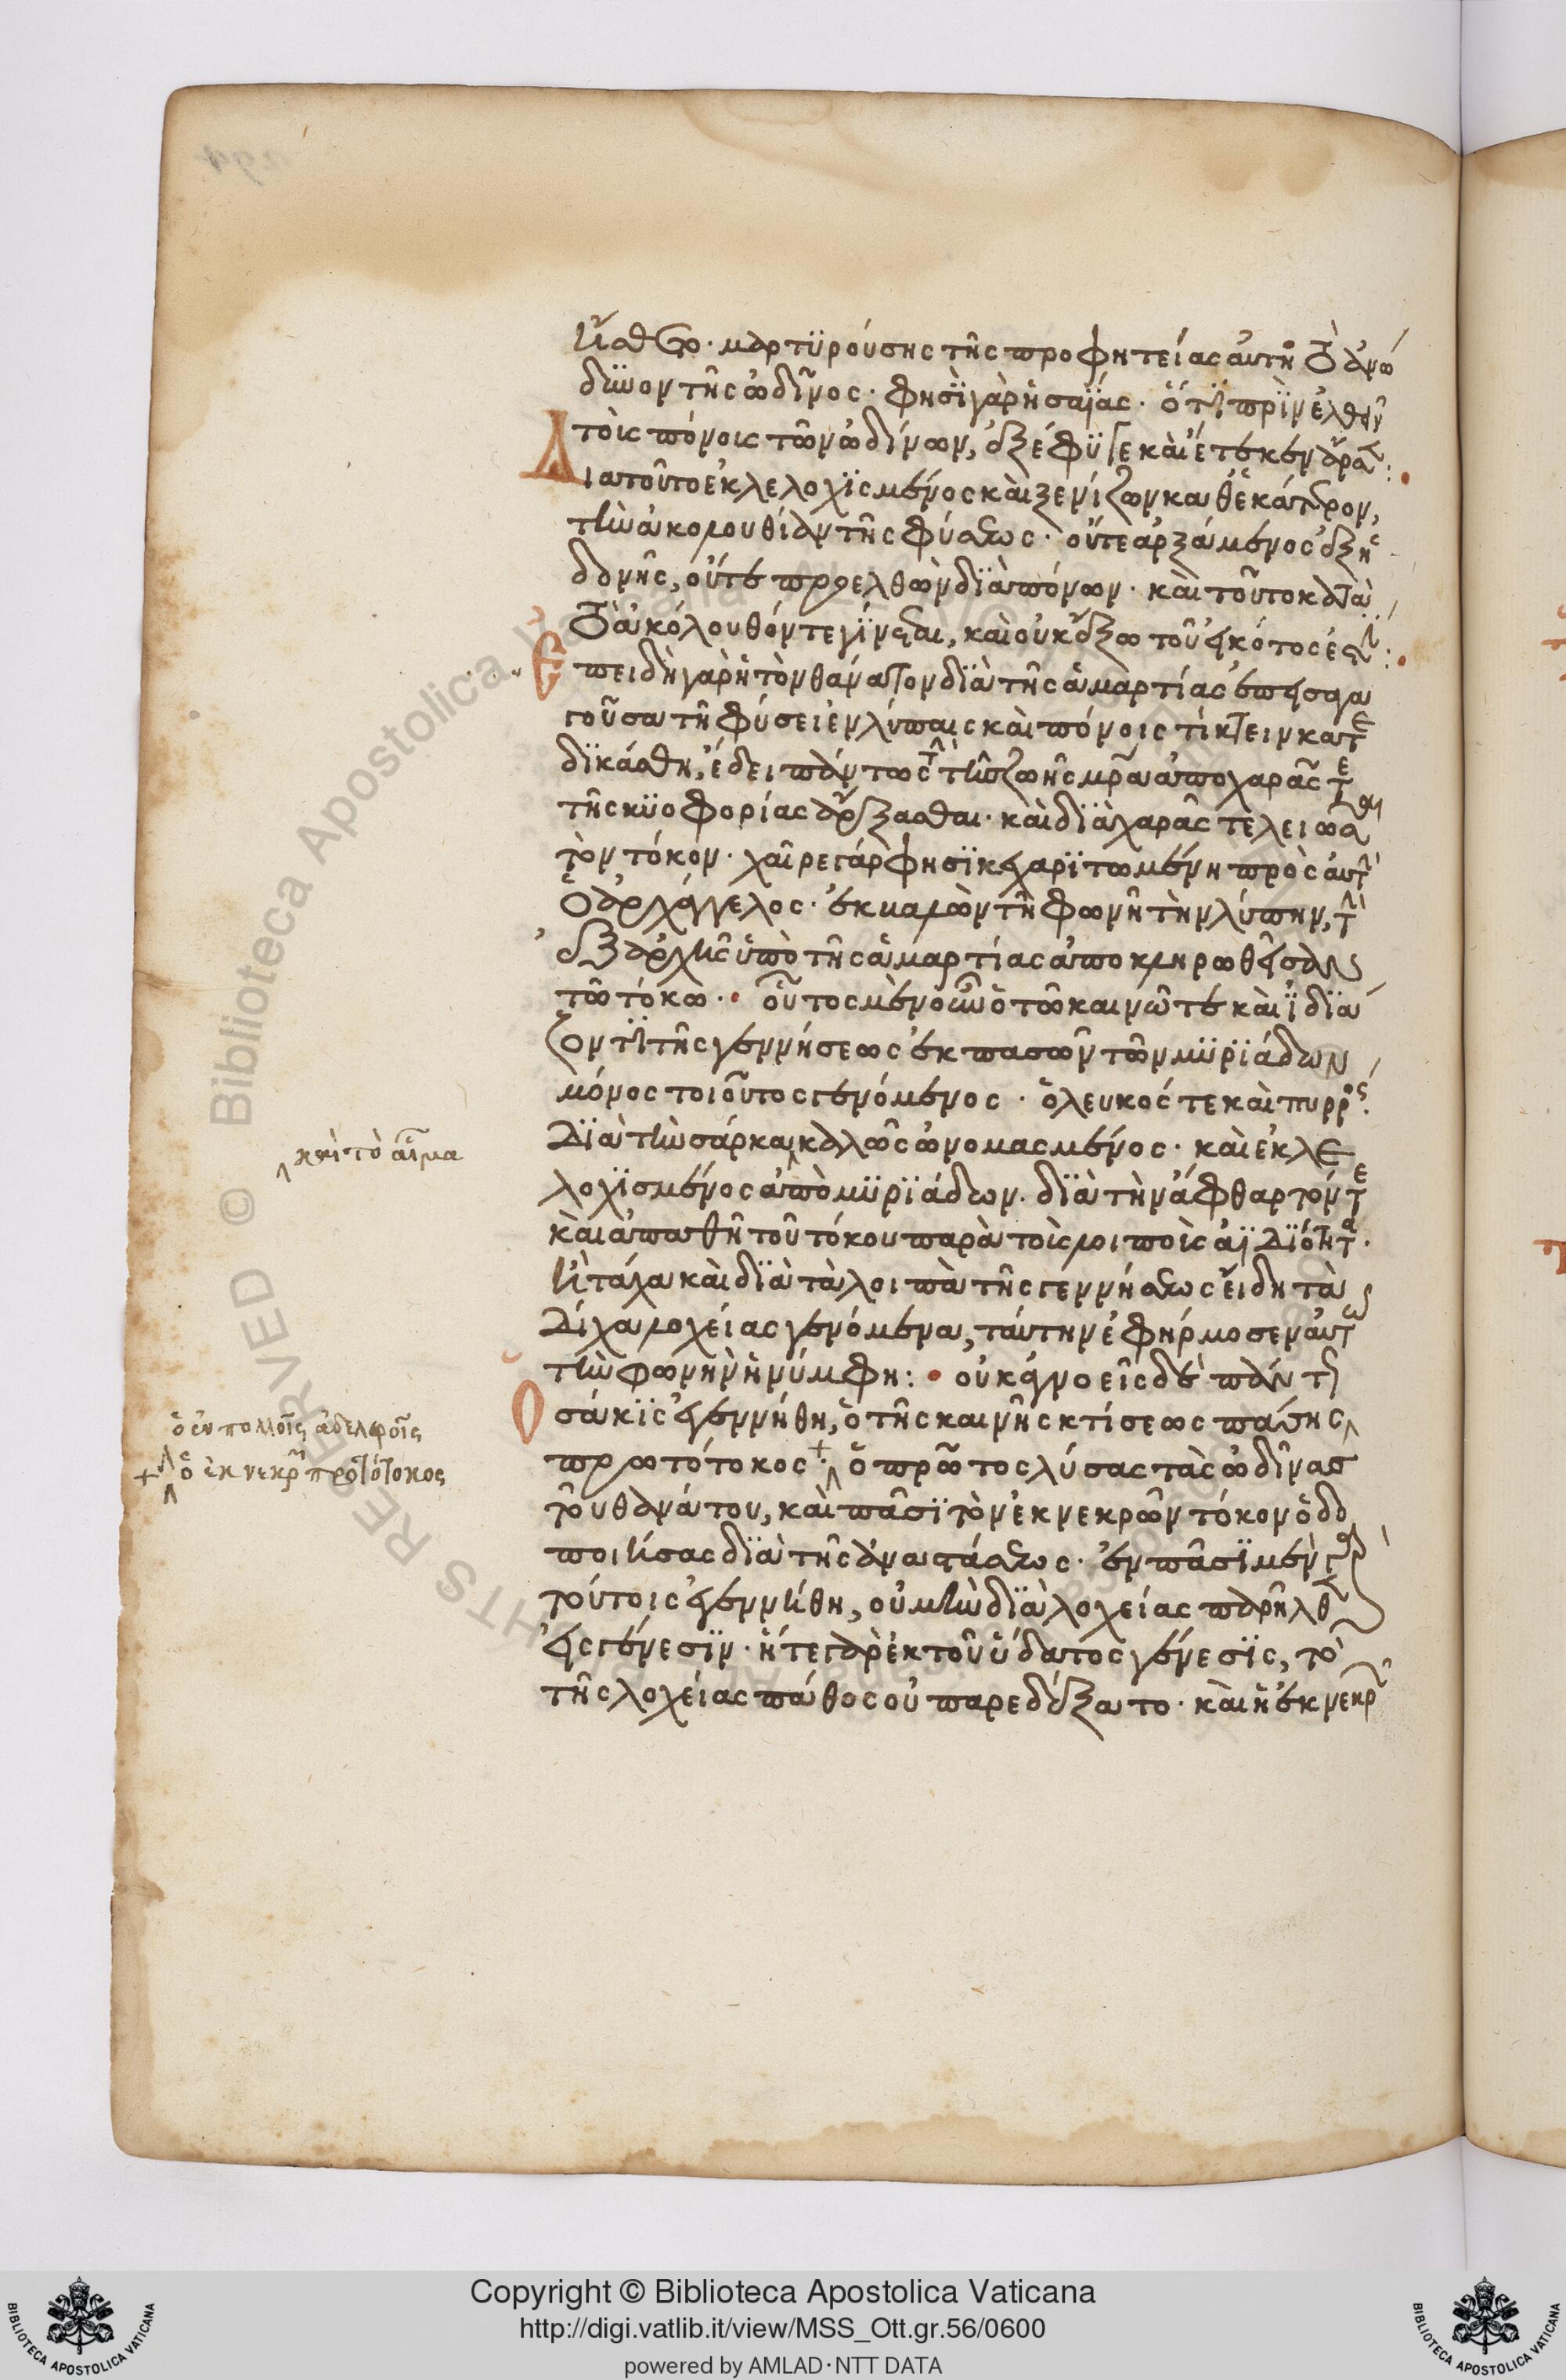 ᾔσθετο· μαρτυρούσης τῆς προφητείας αὐτῆς τὸ ἀνώ
δυνον τῆς ὠδῖνος· φησὶ γὰρ ἡσαΐας· ὅτι πρὶν ἐλθεῖν
τοῖς πόνοις τῶν ὠδίνων, ἐξέφυγε καὶ ἔτεκεν ἄρσεν:
Διατοῦτο ἐκλελοχισμένος καὶ ξενίζων καθ' ἑκάτερον,
τὴν ἀκολουθίαν τῆς φύσεως· οὔτε ἀρξάμενος ἐξ ἡ
δονῆς, οὔτε προελθὼν διὰ πόνων· καὶ τοῦτο κατὰ
τὸ ἀκόλουθόν τε γίνεται, καὶ οὐκ ἔξω τοῦ εἰκότος ἐστί:
Ἐπειδὴ γὰρ ἡ τὸν θάνατον διὰ τῆς ἁμαρτίας ἐπεισαγα
γοῦσα τῇ φύσει ἐν λύπαις καὶ πόνοις τίκτειν κατε
δικάσθη, ἔδει πάντως τὴν τῆς ζωῆς μρα ἀπὸ χαρᾶς τε
τῆς κυοφορίας ἄρξασθαι· καὶ διὰ χαρᾶς τελειῶσαι
τὸν τόκον· χαῖρε γάρ φησι κεχαριτωμένη πρὸς αὐτὴν
ὁ ἀρχάγγελος· ἐκβαλὼν τῇ φωνῇ τὴν λύπην, τὴν
ἐξ ἀρχῆς ὑπὸ τῆς ἁμαρτίας ἀποκληρωθεῖσαν
τῷ τόκῳ· οὗτος μὲν οὖν ὁ τῷ καινῷ τε καὶ ἰδιά
ζοντι τῆς γεννήσεως ἐκ πασῶν τῶν μυριάδων
μόνος τοιοῦτος γενόμενος· ὁ λευκός τε καὶ πυρρός·
Διὰ τὴν σάρκα καλῶς ὠνομασμένος· καὶ ἐκλε
λοχισμένος ἀπὸ μυριάδων· διὰ τὴν ἄφθαρτόν τε
καὶ ἀπαθῆ τοῦ τόκου παρὰ τοῖς λοιποῖς ἀϊδιότητα·
ἢ τάχα καὶ διὰ τὰ λοιπὰ τῆς γεννήσεως εἴδη τὰ
Δίχα λοχείας γενόμενα, ταύτην ἐφήρμοσεν αὐτῷ
τὴν φωνὴν ἡ νύμφη: οὐκ ἀγνοεῖς δὲ πάντως
Ὁσάκις ἐγεννήθη, ὁ τῆς καινῆς κτίσεως πάσης
πρωτότοκος· ὁ πρῶτος λύσας τὰς ὠδῖνας
τοῦ θανάτου, καὶ πᾶσι τὸν ἐκ νεκρῶν τόκον ὁδο
ποιήσας διὰ τῆς ἀναστάσεως· ἐν πᾶσι μὲν γὰρ
τούτοις ἐγεννήθη, οὐ μὴν διὰ λοχείας παρῆλθεν
εἰς γένεσιν· ἥ τε γὰρ ἐκ τοῦ ὕδατος γένεσις, τὸ
τῆς λοχείας πάθος οὐ παρεδέξατο· καὶ ἡ ἐκ νεκρῶν
καὶ τὸ αἷμα
ὁ ἐν πολλοῖς ἀδελφοῖς
ὁ ἐκ νεκρῶν πρωτότοκος
Copyright © Biblioteca Apostolica Vaticana
http://digi.vatlib.it/view/MSS_Ott.gr.56/0600
powered by AMLAD·NTT DATA